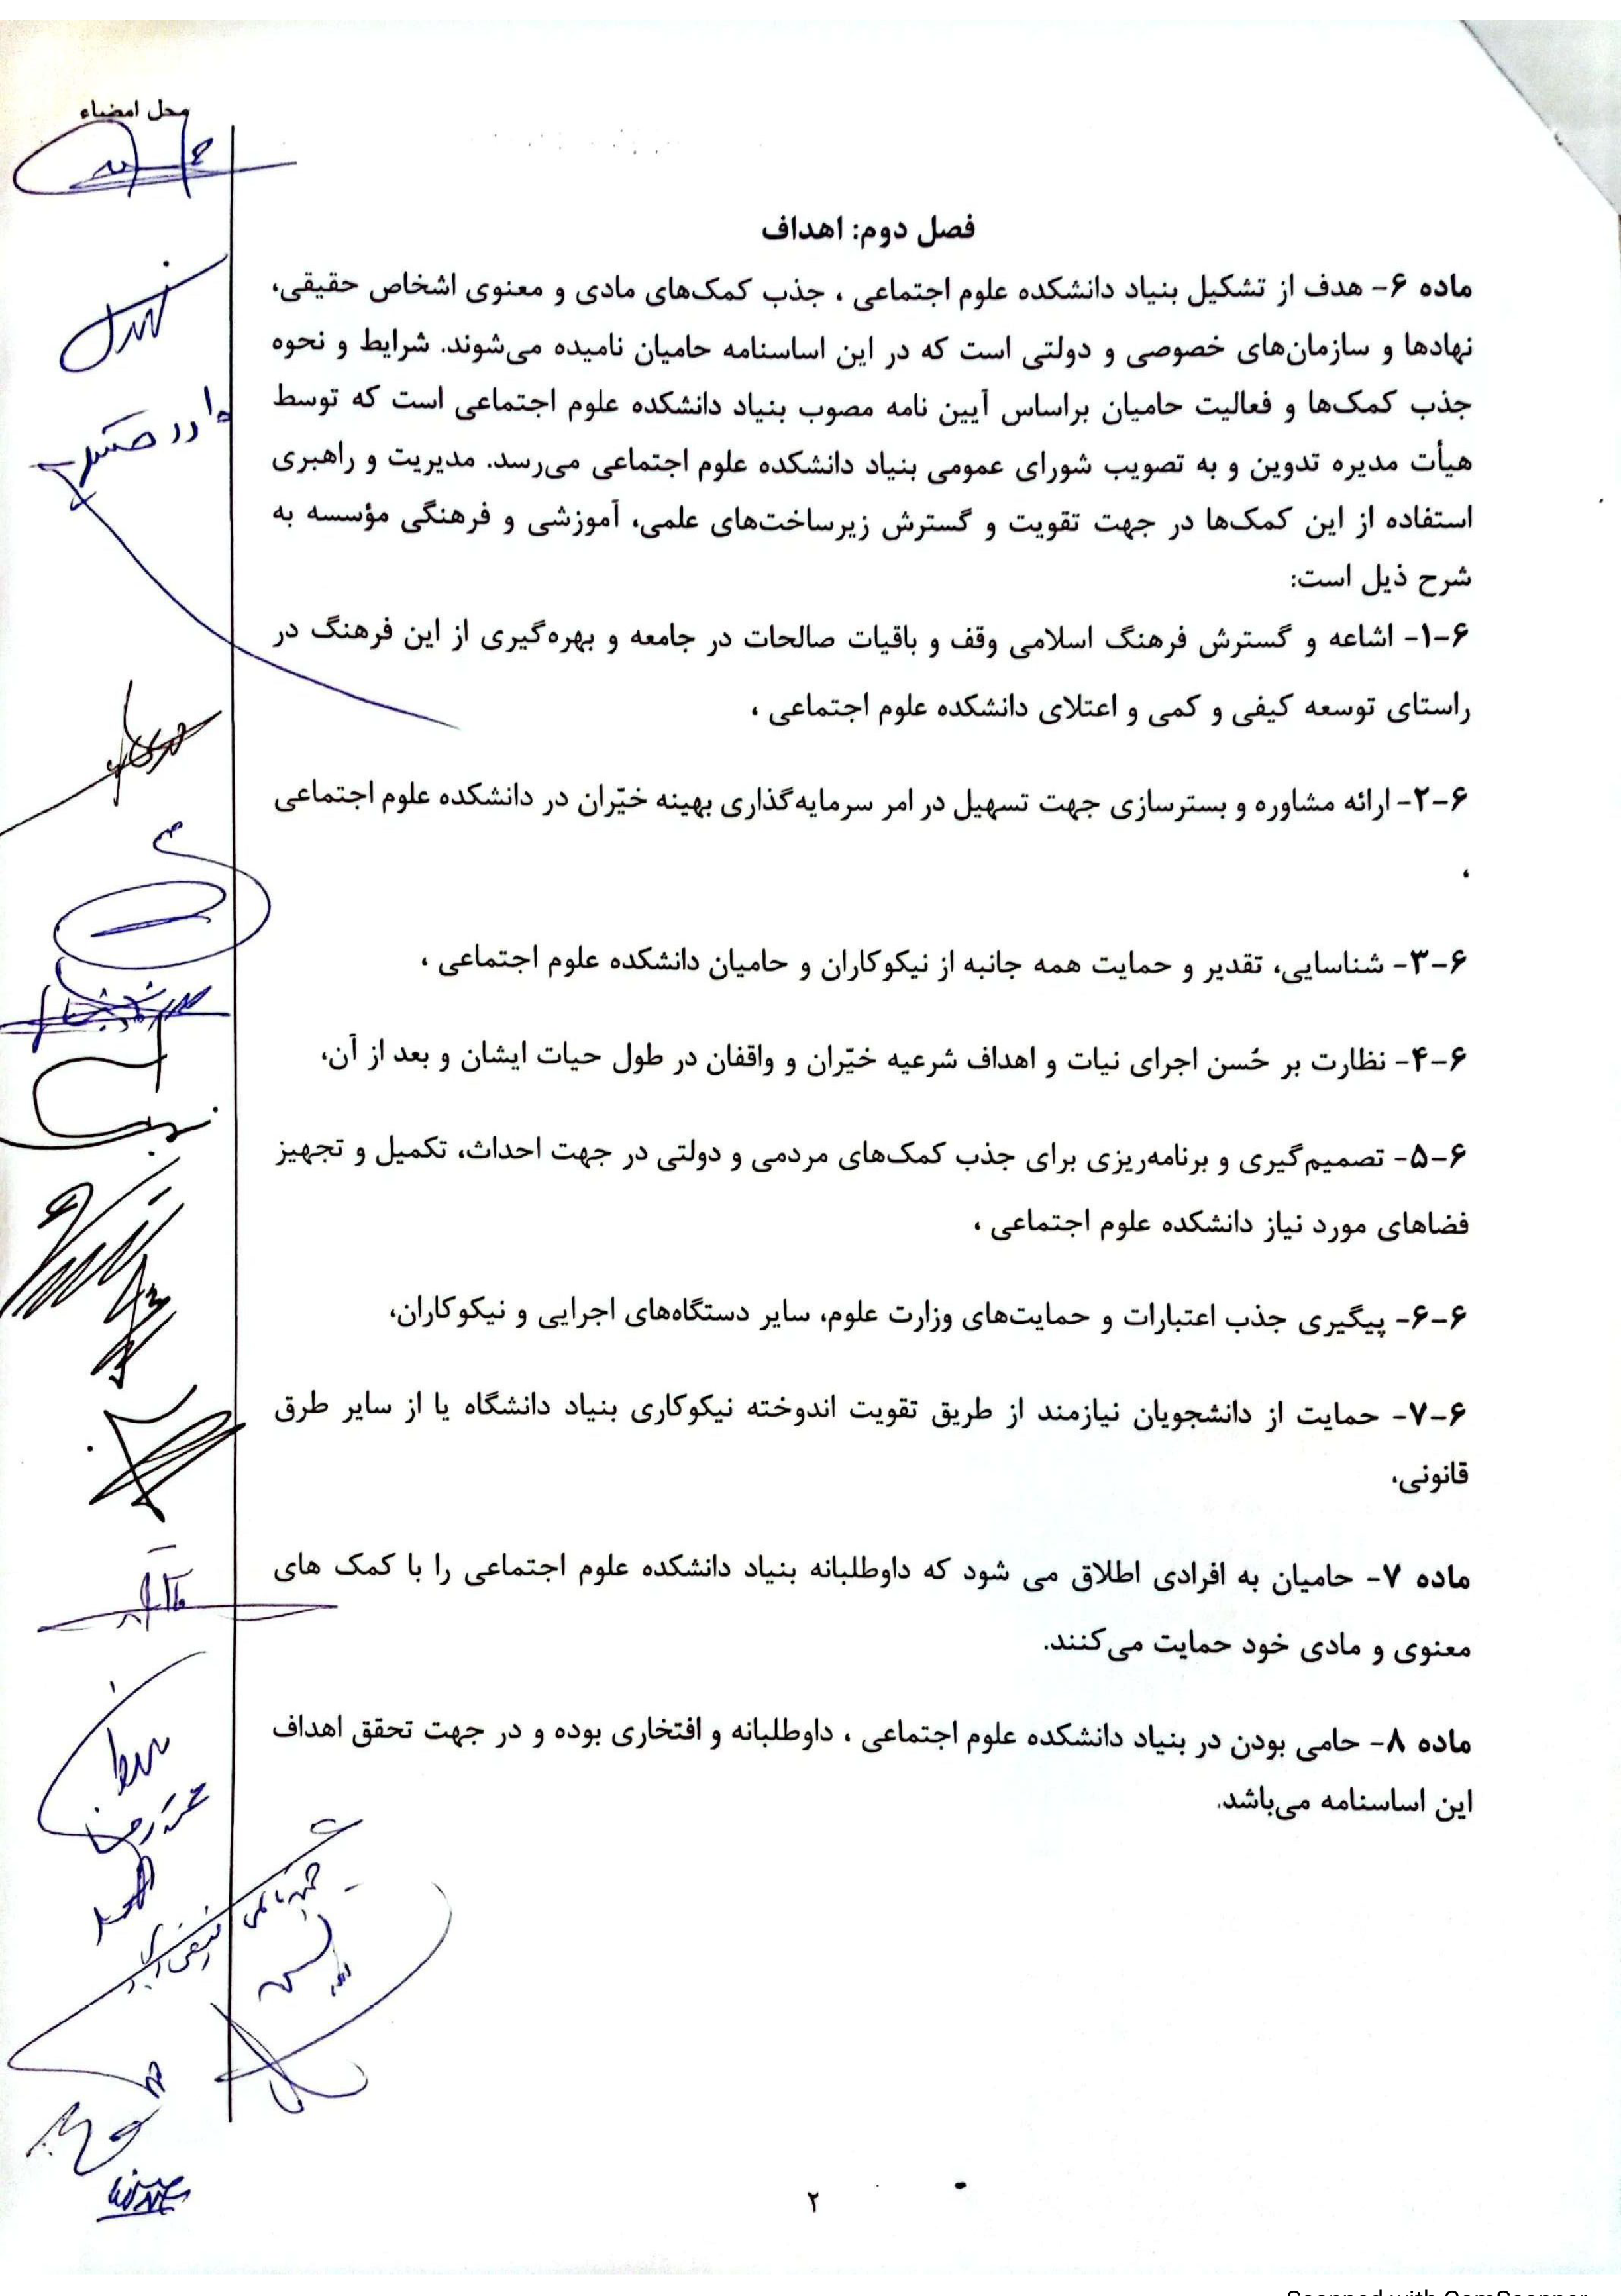 محل امضاء
فصل دوم: اهداف
ماده ۶- هدف از تشکیل بنیاد دانشکده علوم اجتماعی ، جذب کمک‌های مادی و معنوی اشخاص حقیقی،
نهادها و سازمان‌های خصوصی و دولتی است که در این اساسنامه حامیان نامیده می‌شوند. شرایط و نحوه
جذب کمک‌ها و فعالیت حامیان براساس آیین نامه مصوب بنیاد دانشکده علوم اجتماعی است که توسط
هیأت مدیره تدوین و به تصویب شورای عمومی بنیاد دانشکده علوم اجتماعی می‌رسد. مدیریت و راهبری
استفاده از این کمک‌ها در جهت تقویت و گسترش زیرساخت‌های علمی، آموزشی و فرهنگی مؤسسه به
شرح ذیل است:
۶-۱- اشاعه و گسترش فرهنگ اسلامی وقف و باقیات صالحات در جامعه و بهره‌گیری از این فرهنگ در
راستای توسعه کیفی و کمی و اعتلای دانشکده علوم اجتماعی ،
۶-۲- ارائه مشاوره و بسترسازی جهت تسهیل در امر سرمایه‌گذاری بهینه خیّران در دانشکده علوم اجتماعی
،
۶-۳- شناسایی، تقدیر و حمایت همه جانبه از نیکوکاران و حامیان دانشکده علوم اجتماعی ،
۶-۴- نظارت بر حُسن اجرای نیات و اهداف شرعیه خیّران و واقفان در طول حیات ایشان و بعد از آن،
۶-۵- تصمیم‌گیری و برنامه‌ریزی برای جذب کمک‌های مردمی و دولتی در جهت احداث، تکمیل و تجهیز
فضاهای مورد نیاز دانشکده علوم اجتماعی ،
۶-۶- پیگیری جذب اعتبارات و حمایت‌های وزارت علوم، سایر دستگاه‌های اجرایی و نیکوکاران،
۶-۷- حمایت از دانشجویان نیازمند از طریق تقویت اندوخته نیکوکاری بنیاد دانشگاه یا از سایر طرق
قانونی،
ماده ۷- حامیان به افرادی اطلاق می شود که داوطلبانه بنیاد دانشکده علوم اجتماعی را با کمک های
معنوی و مادی خود حمایت می‌کنند.
ماده ۸- حامی بودن در بنیاد دانشکده علوم اجتماعی ، داوطلبانه و افتخاری بوده و در جهت تحقق اهداف
این اساسنامه می‌باشد.
۲